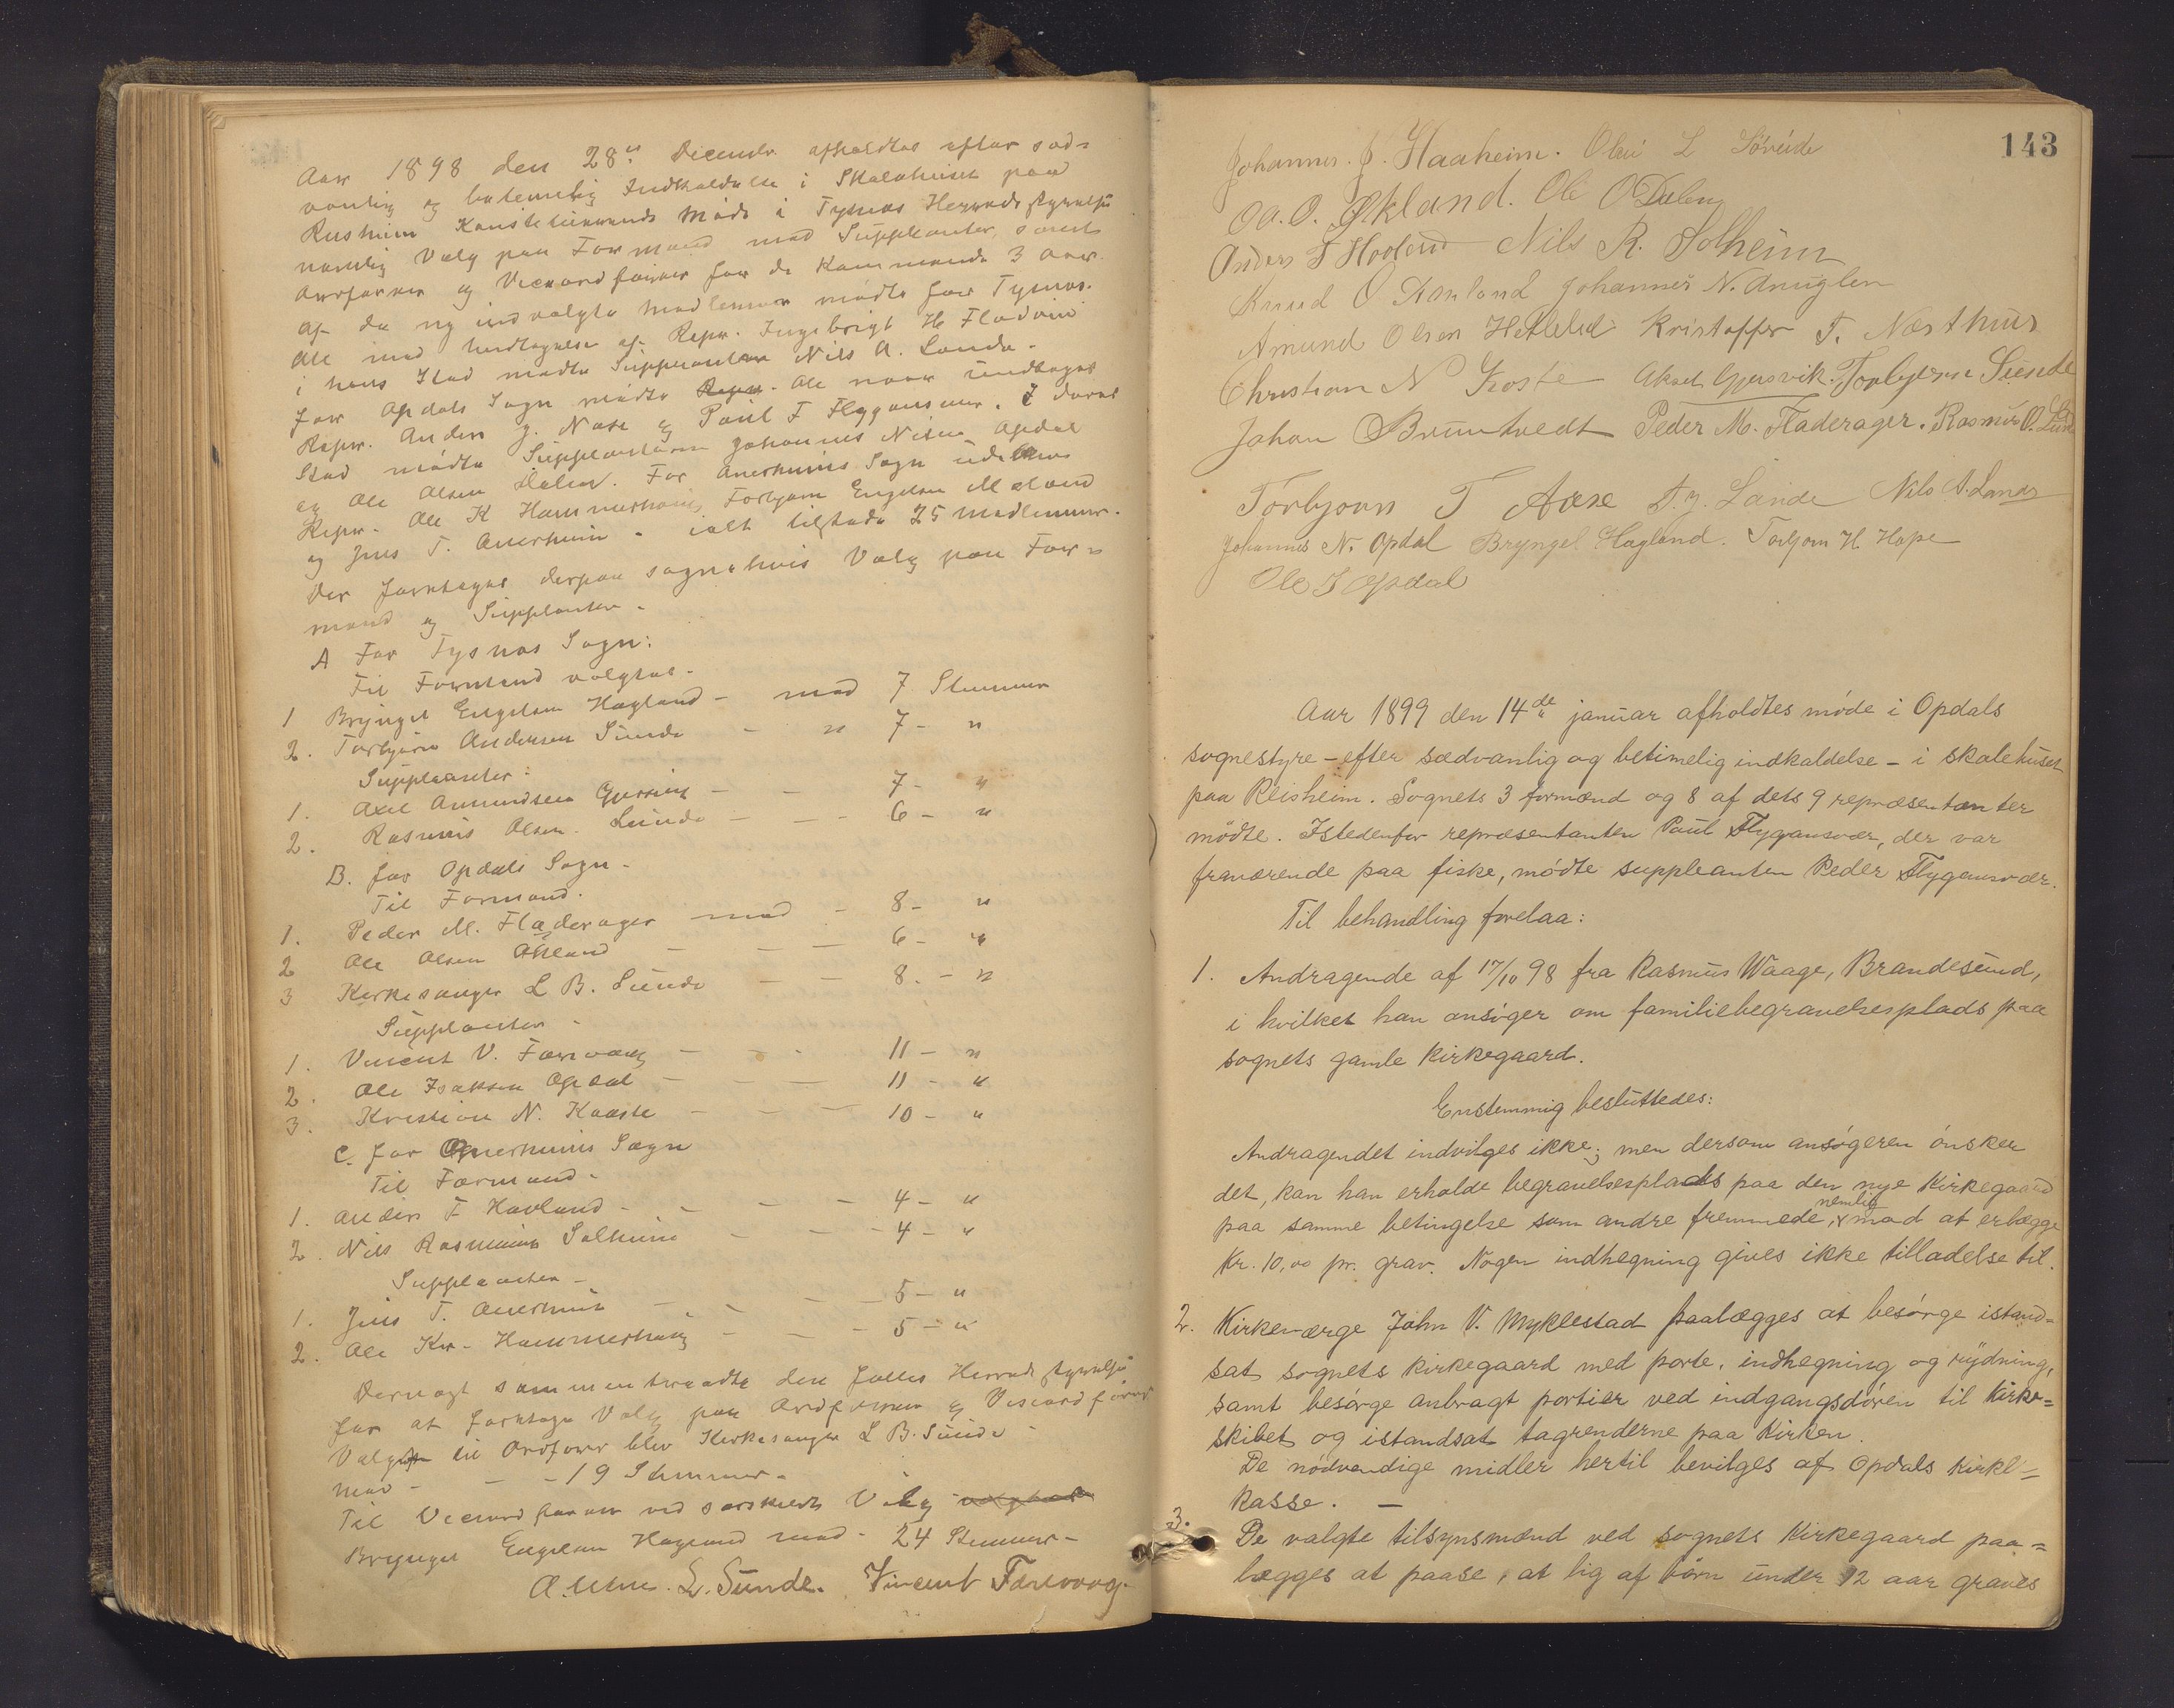 Aar 1898 den 28de Decembr afholdtes efter sæd=
vanlig og betimelig Indkaldelse i Skolehuset paa
Reisheim Konstituerende Møde i Tysnes Herredsstyrelse
nemlig Valg paa Formænd med Suppleanter, samt
Ordfører og Viceordfører for de Kommende 3 Aar.
Af de ny indvalgte Medlemmer mødte for Tysnes.
Alle med Undtagelse af Repr. Ingebrigt H. Fladvin
i hans Sted mødte Suppleanten Nils A. Lande.
for Opdals Sogn mødte Alle naar undtages
Repr. Anders J. Nase og Paul T Flygansvær. I deres
Sted mødte Suppleanterne Johannes Nilsen Opdal
og Ole Olsen Dalen. For Onerheims Sogn udeblev
Repr. Ole K Hammerhaug, Torbjørn Engelsen Meland
og Jens T. Onerheim. ialt tilstede 25 Medlemmer.
Der foretoges derpaa sognehvis Valg paa For=
mænd og Suppleanter.
A For Tysnes Sogn:
Til Formænd valgtes.
1 Brynjel Engelsen Hagland - med 7 Stemmer
2. Torbjørn Andersen Sunde - " 7 - "
Suppleanter:
1. Axel Amundsen Gjersvig - - 7 - "
2. Rasmus Olsen Lunde - - - 6 - "
B. for Opdals Sogn -
Til Formænd.
1. Peder M. Fladerager med - 8 - "
2 Ole Olsen Økland - - - 6 - "
3 Kirkesanger L B. Sunde - - 8. - "
Suppleanter -
1. Vincent V. Færevaag - - - 11 - "
2. Ole Isaksen Opdal - - - 11 - "
3. Kristian N. Kaaste - - - 10 - "
C. for Onerheims Sogn
Til Formænd -
1. Anders T Hovland - - - - 4 - "
2. Nils Rasmusen Solheim - - - 4 - "
Suppleanter -
1. Jens T. Onerheim - - - 5 - "
2. Ole Kr. Hammerhaug - - - 5 - "
Dernæst sammentraadte den fælles Herredsstyrelse
for at foretage Valg paa Ordfører og Viceordfører
Valgt til Ordfører blev Kirkesanger L B. Sunde -
med - - - 19 Stemmer -
Til Viceordfører ved særskilt Valg valgtes
Brynjel Engelsen Hagland med - 24 Stemmer -
L. Sunde. Vincent Færevaag.
143
Johannes. J. Haaheim. Olai L Sørvide
O. O. Økland. Ole O Dalen
Anders T Hovland Nils R. Solheim
Knud O Johannes N. Anuglen
Amund Olsen Hetleled Kristoffer T. Næsthus
Christian N Koste Aksel Gjersvik. Torbjørn Sunde
Johan Bruntvedt Peder M. Fladerager. Rasmus O. Lunde
Torbjørn T Aase T. J. Lande Nils A. Lande
Johannes N. Opdal Bryngel Hagland. Torbjørn H. Hope
Ole I Opdal
Aar 1899 den 14de januar afholdtes møde i Opdals
sognestyre - efter sædvanlig og betimelig indkaldelse - i skolehuset
paa Reisheim. Sognets 3 formænd og 8 af dets 9 repræsentanter
mødte. Istedenfor repræsentanten Paul Flygansvær, der var
fraværende paa fiske, mødte suppleanten Peder Flygansvær.
Til behandling forelaa:
1. Andragende af 17/10 98 fra Rasmus Waage, Brandesund,
i hvilket han ansøger om familiebegravelsesplads paa
sognets gamle kirkegaard.
Enstemmig besluttedes:
Andragendet indvilges ikke; men dersom ansøgeren ønsker
det, kan han erholde begravelsesplads paa den nye kirkegaard
paa samme betingelse som andre fremmede, nemlig mod at erlægge
Kr. 10,00 pr. grav. Nogen indhegning gives ikke tilladelse til.
2. Kirkeværge John V. Myklestad paalægges at besørge istand=
sat sognets kirkegaard med porte, indhegning og rydning,
samt besørge anbragt portier ved indgangsdøren til kirke=
skibet og istandsat tagrenderne paa kirken.
De nødvendige midler hertil bevilges af Opdals kirke=
kasse. -
3. De valgte tilsynsmænd ved sognets kirkegaard paa=
lægges at paase, at lig af børn under 12 aar graves